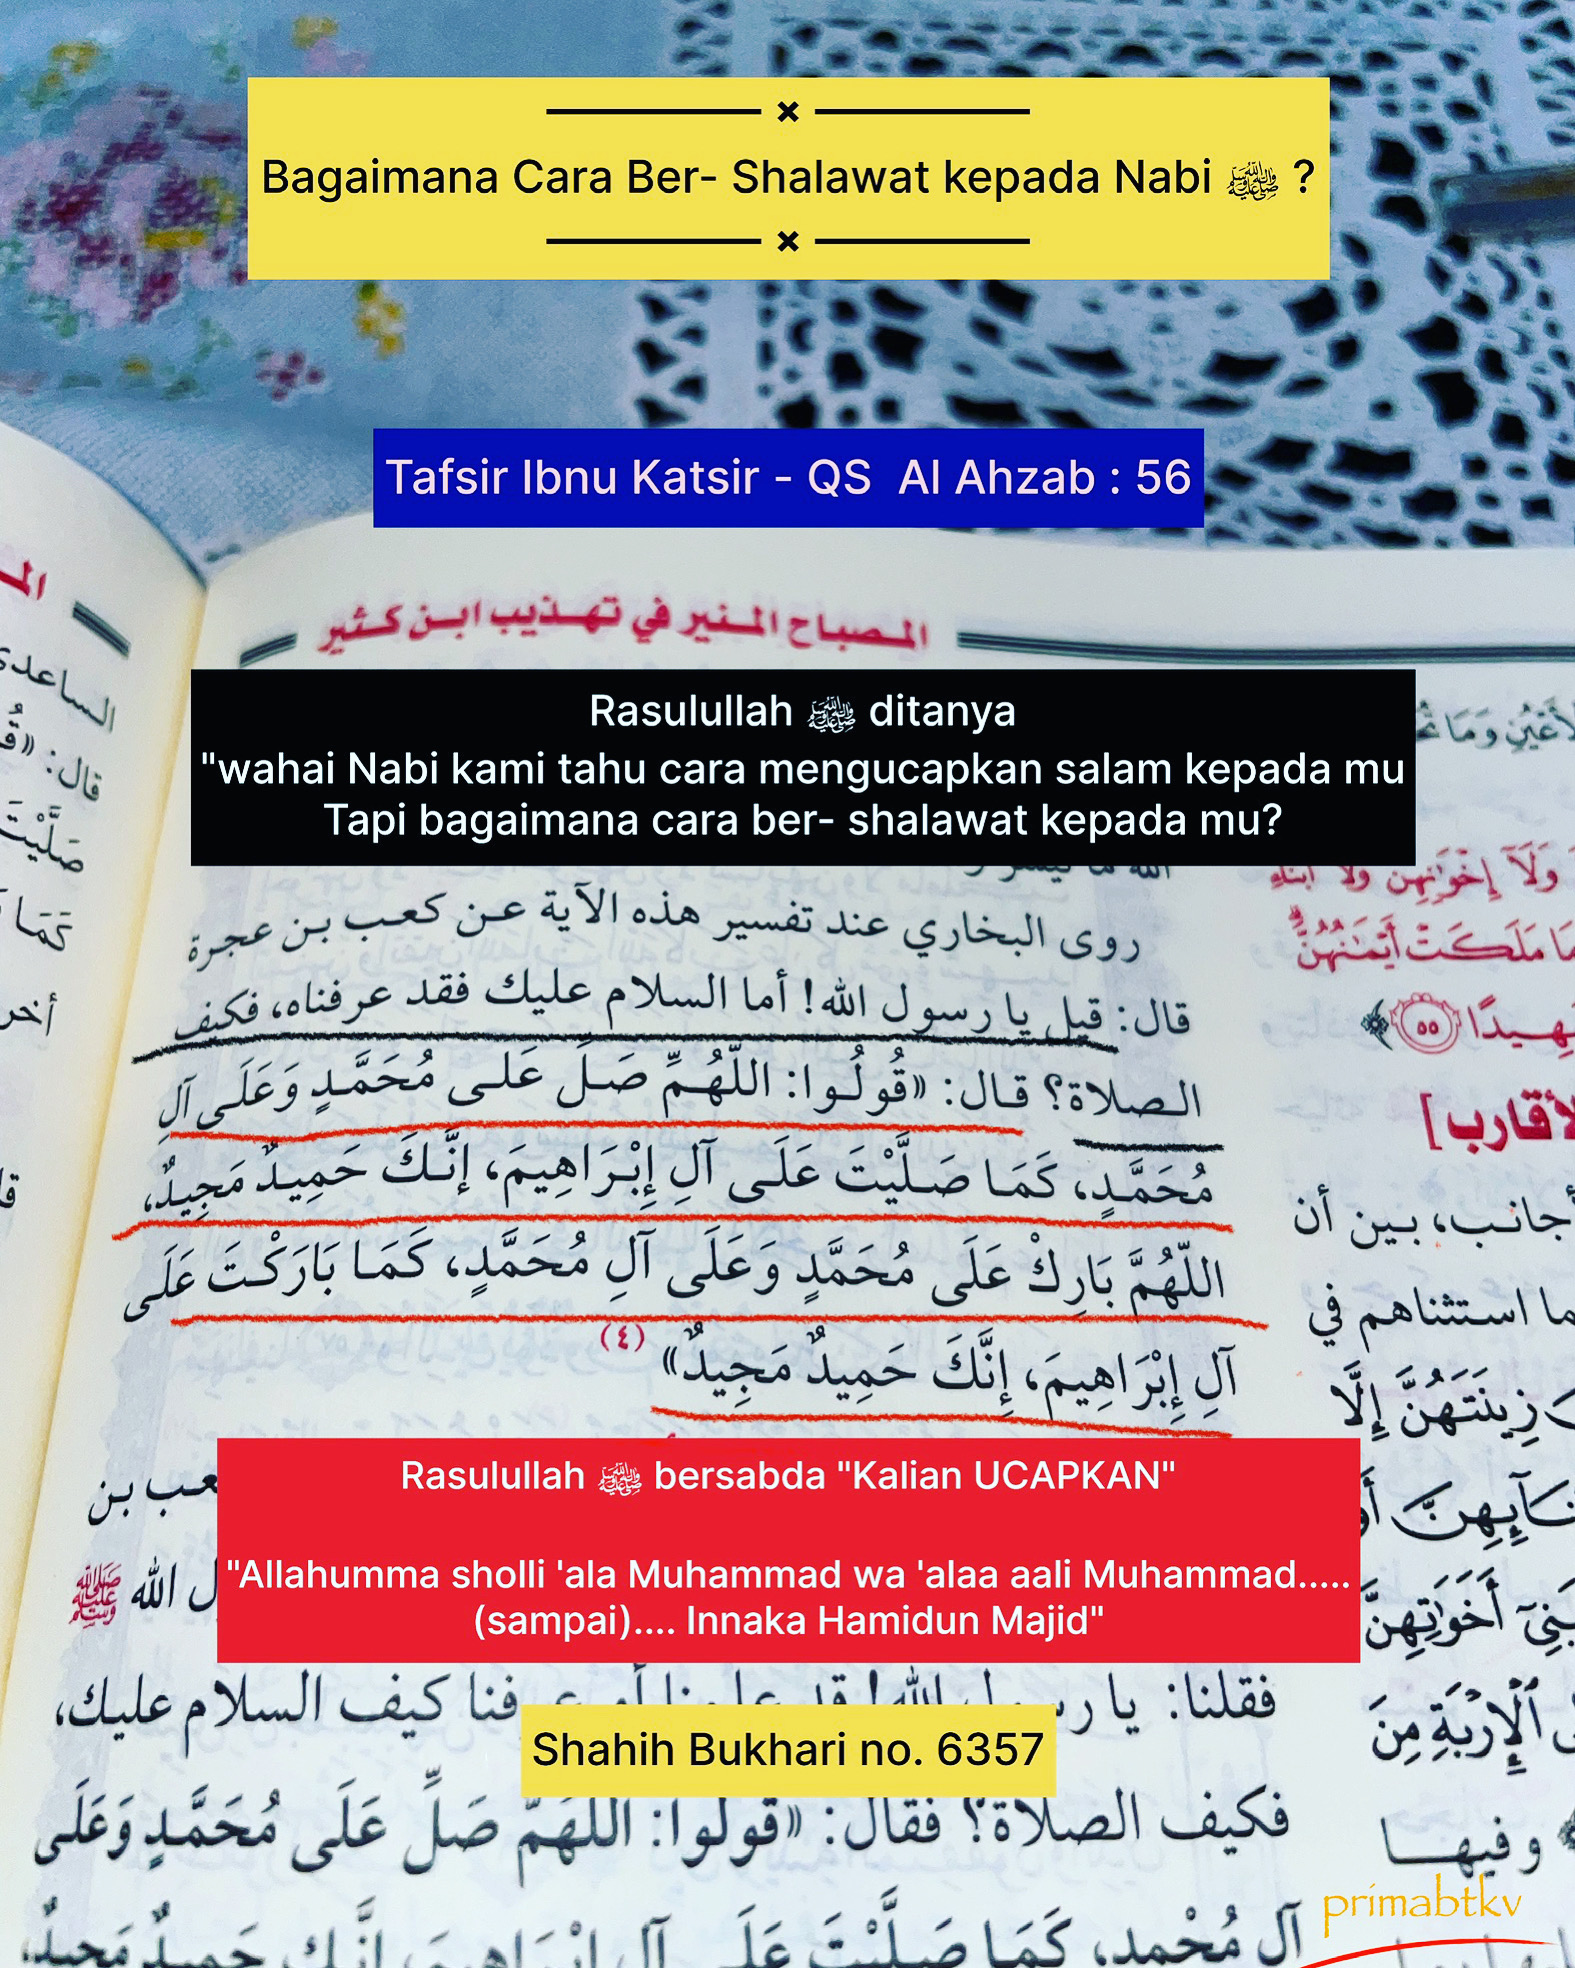 Bagaimana Cara Ber- Shalawat kepada Nabi ﷺ ?
Tafsir Ibnu Katsir - QS  Al Ahzab : 56
المصباح المنير في تهذيب ابن كثير
Rasulullah ﷺ ditanya
"wahai Nabi kami tahu cara mengucapkan salam kepada mu
Tapi bagaimana cara ber- shalawat kepada mu?
روى البخاري عند تفسير هذه الآية عن كعب بن عجرة
قال: قيل يا رسول الله! أما السلام عليك فقد عرفناه، فكيف
الصلاة؟ قال: «قُولُوا: اللّهُمَّ صَلِّ عَلَى مُحَمَّدٍ وَعَلَى آلِ
مُحَمَّدٍ، كَمَا صَلَّيْتَ عَلَى آلِ إِبْرَاهِيمَ، إِنَّكَ حَمِيدٌ مَجِيدٌ،
اللّهُمَّ بَارِكْ عَلَى مُحَمَّدٍ وَعَلَى آلِ مُحَمَّدٍ، كَمَا بَارَكْتَ عَلَى
آلِ إِبْرَاهِيمَ، إِنَّكَ حَمِيدٌ مَجِيدٌ» (٤)
Rasulullah ﷺ bersabda "Kalian UCAPKAN"
"Allahumma sholli 'ala Muhammad wa 'alaa aali Muhammad.....
(sampai).... Innaka Hamidun Majid"
فقلنا: يا رسول الله! قد علمنا أو عرفنا كيف السلام عليك،
Shahih Bukhari no. 6357
فكيف الصلاة؟ فقال: «قُولُوا: اللّهُمَّ صَلِّ عَلَى مُحَمَّدٍ وَعَلَى
آلِ مُحْمد، كَمَا صَلَّيْتَ عَلَى آلِ إِبْرَاهِيمَ، إِنَّكَ حَمِيدٌ مَجِيدٌ،
الساعدي
قال:
صَلَّيْتَ
كَمَا
وَلَآ إِخْوَٰنِهِنَّ وَلَآ أَبْنَآءِ
مَا مَلَكَتْ أَيْمَٰنُهُنَّ
٥٥
الأقارب]
بين أن
ما استثناهم في
زِينَتَهُنَّ إِلَّا
بَنِىٓ أَخَوَٰتِهِنَّ
ٱلْإِرْبَةِ مِنَ
وفيها
primabtkv